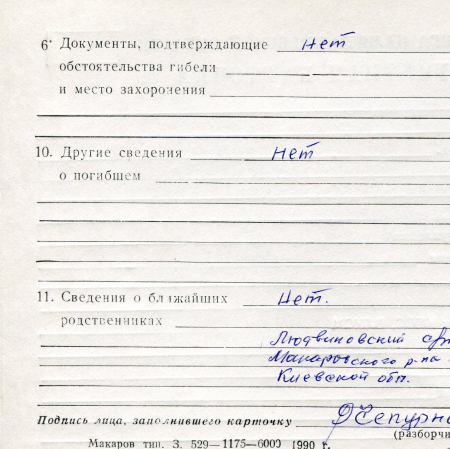 6. Документы, подтверждающие нет
обстоятельства гибели
и место захоронения
10. Другие сведения нет
о погибшем
11. Сведения о ближайших нет.
родственниках
Людвиновский
Макаровского р-на
Киевской обл.
Подпись лица, заполнившего карточку
(разборчи
Макаров тип. З. 529—1175—6000 1990 г.